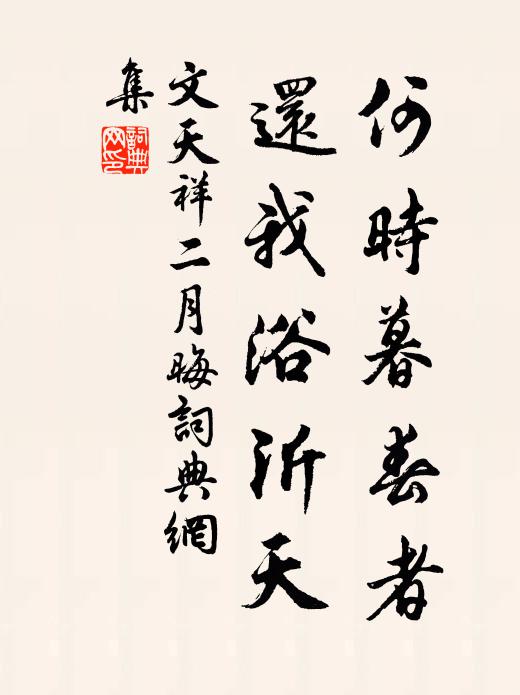 何時暮春者
還我浴沂天
文天祥二月晦詞典網
集
詞典
网印